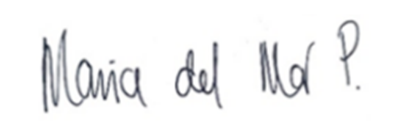 Maria del Mar P.